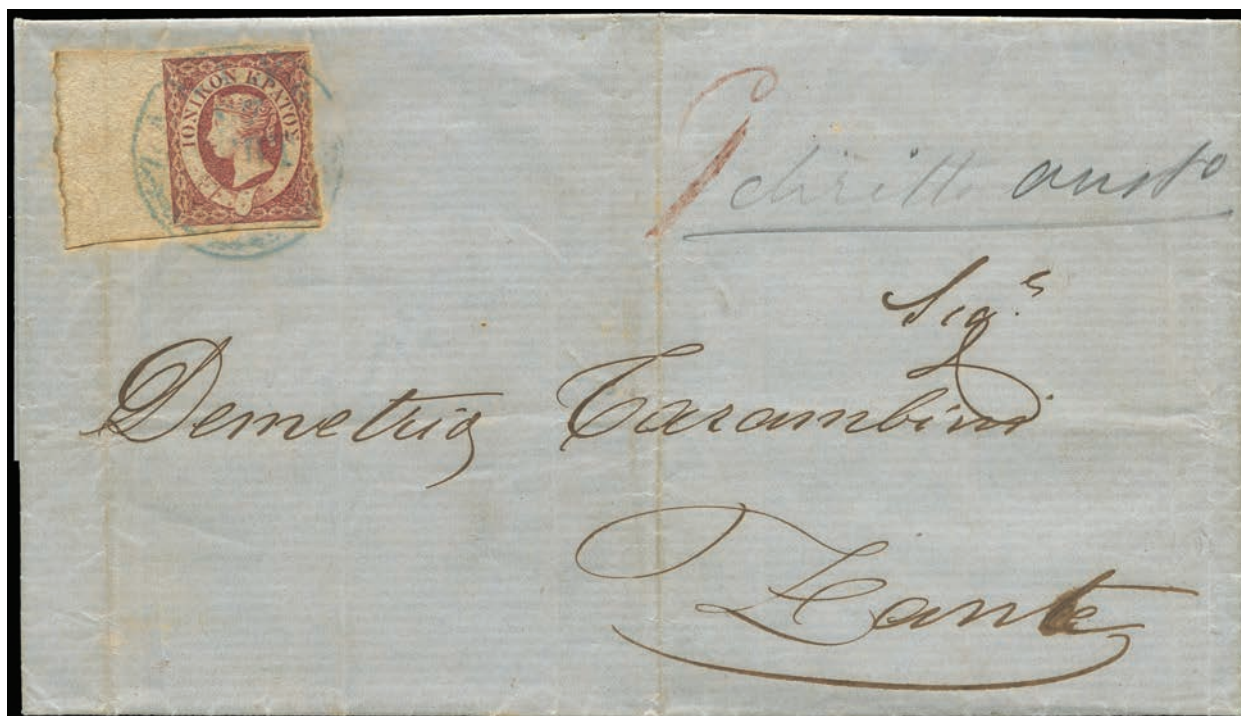 ΙΟΝΙΚΟΝ ΚΡΑΤΟΣ
diritto
Sig.r
Demetrio Carambini
Zante